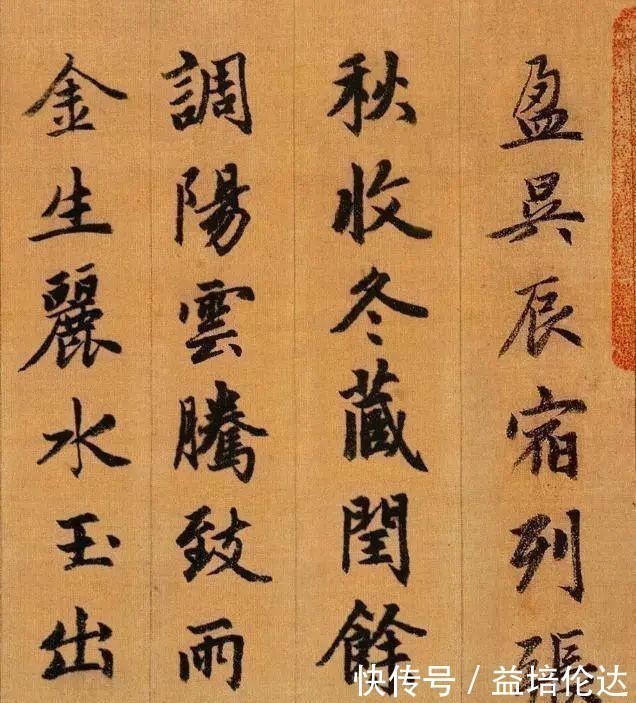 盈昃辰宿列張
秋收冬藏閏餘
調陽雲騰致雨
金生麗水玉出
快传号 / 益培伦达